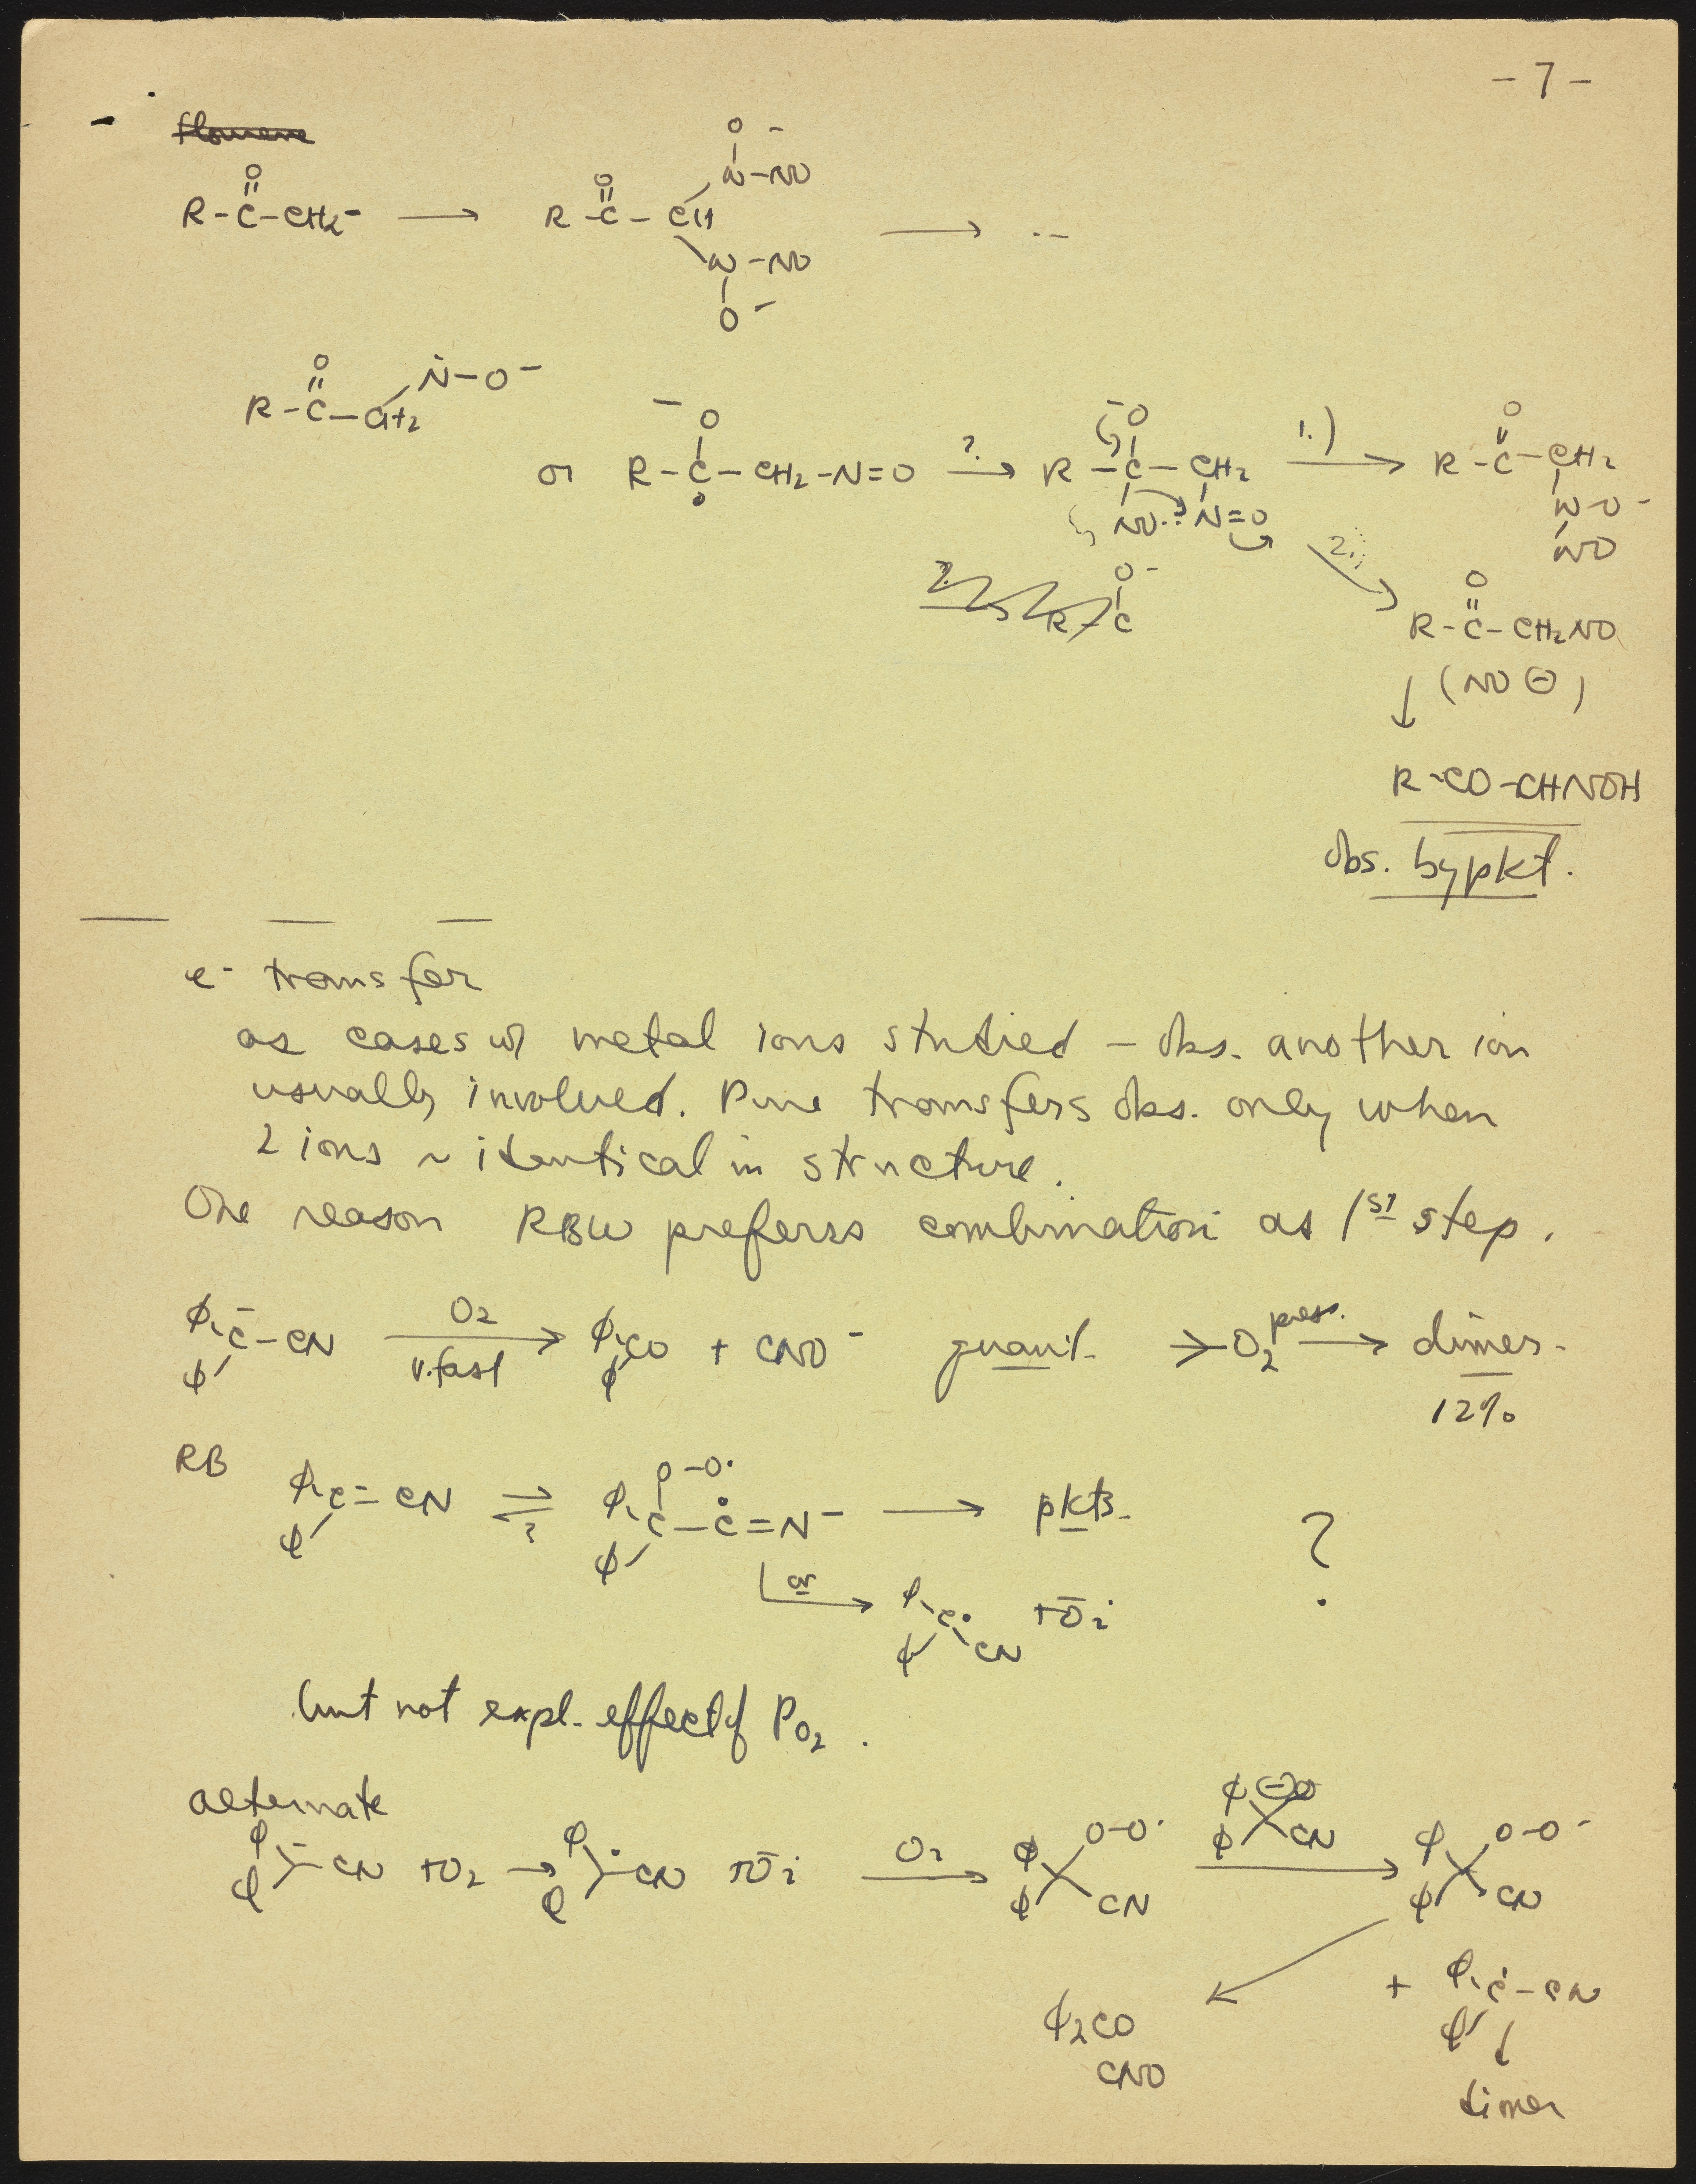 - 7 -
R-C(=O)-CH2⁻ ⟶ R-C(=O)-CH(N(O⁻)-NO)(N(O⁻)-NO) ⟶ --
R-C(=O)-CH2-N-O⁻
or R-C(O⁻)-CH2-N=O ?⟶ R-C(O⁻)(NO)-CH2-N=O 1.)⟶ R-C(=O)-CH2-N(NO)-O⁻
2.⟶ R-C(=O)-CH2NO
? R-C-O⁻
↓ (NO ⊖)
R-CO-CHNOH
obs. bypkt.
e⁻ transfer
as cases w/ metal ions studied - obs. another ion
usually involved. Pure transfers obs. only when
2 ions ~ identical in structure.
One reason RBW prefers combination as 1st step.
ϕϕC⁻-CN O2⟶ v.fast ϕϕCO + CNO⁻ quant. >O2 press.⟶ dimer.
12%
RB ϕϕC⁻-CN ⇌? ϕϕC(O-O·)-Ċ=N⁻ ⟶ pkts. ?
or⟶ ϕϕC·-CN + Ō2
but not expl. effect of PO2.
alternate
ϕϕ⁻-CN + O2 → ϕϕ·-CN + Ō2 O2⟶ ϕϕ(O-O·)CN ϕϕ⊖CN⟶ ϕϕ(O-O⁻)CN
+ ϕϕĊ-CN
ϕ2CO
CNO
↓
dimer